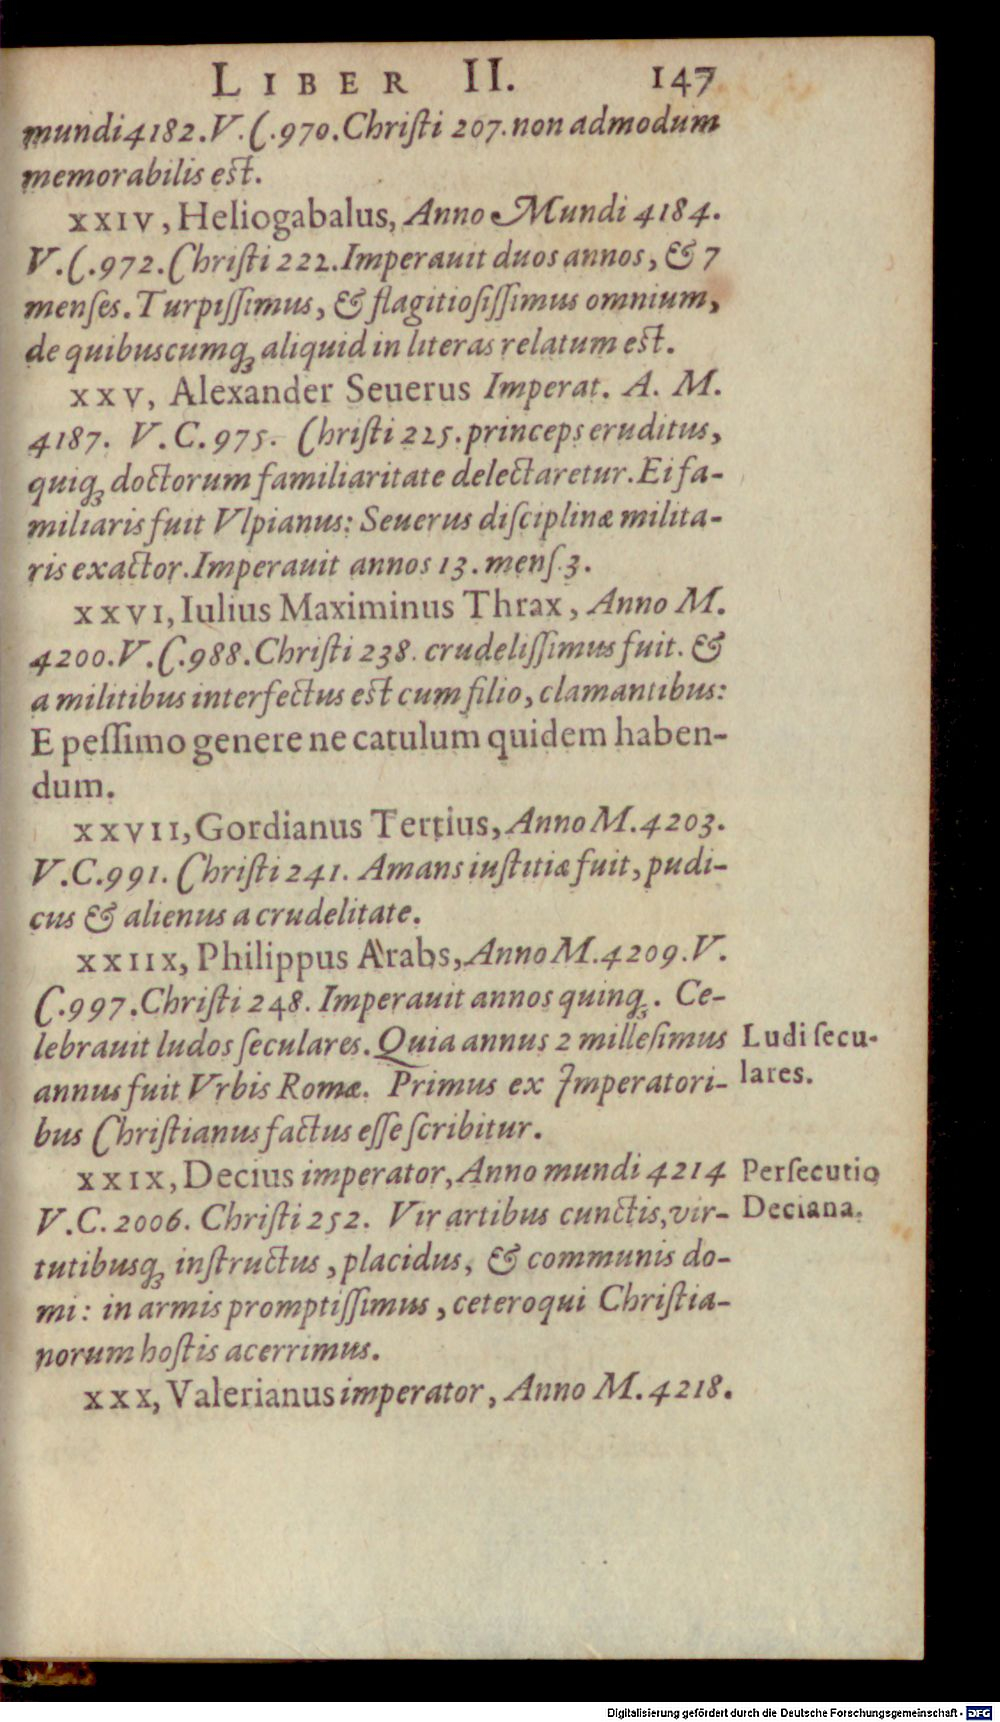 LIBER II. 147
mundi 4182. V. C. 970. Chriſti 207. non admodum
memorabilis eſt.
XXIV, Heliogabalus, Anno Mundi 4184.
V. C. 972. Chriſti 222. Imperauit duos annos, & 7
menſes. Turpiſſimus, & flagitioſiſſimus omnium,
de quibuscumq́; aliquid in literas relatum eſt.
XXV, Alexander Seuerus Imperat. A. M.
4187. V. C. 975. Chriſti 225. princeps eruditus,
quiq́; doctorum familiaritate delectaretur. Ei fa-
miliaris fuit Vlpianus: Seuerus diſciplinæ milita-
ris exactor. Imperauit annos 13. menſ. 3.
XXVI, Iulius Maximinus Thrax, Anno M.
4200. V. C. 988. Chriſti 238. crudeliſſimus fuit. &
a militibus interfectus eſt cum filio, clamantibus:
E peſſimo genere ne catulum quidem haben-
dum.
XXVII, Gordianus Tertius, Anno M. 4203.
V. C. 991. Chriſti 241. Amans iuſtitiæ fuit, pudi-
cus & alienus a crudelitate.
XXIIX, Philippus Arabs, Anno M. 4209. V.
C. 997. Chriſti 248. Imperauit annos quinq́;. Ce-
lebrauit ludos ſeculares. Quia annus 2 milleſimus
Ludi ſecu-
lares.
annus fuit Vrbis Romæ. Primus ex Imperatori-
bus Chriſtianus factus eſſe ſcribitur.
XXIX, Decius imperator, Anno mundi 4214
Perſecutio
Deciana.
V. C. 2006. Chriſti 252. Vir artibus cunctis, vir-
tutibusq́; inſtructus, placidus, & communis do-
mi: in armis promptiſſimus, ceteroqui Chriſtia-
norum hoſtis acerrimus.
XXX, Valerianus imperator, Anno M. 4218.
Digitalisierung gefördert durch die Deutsche Forschungsgemeinschaft - DFG